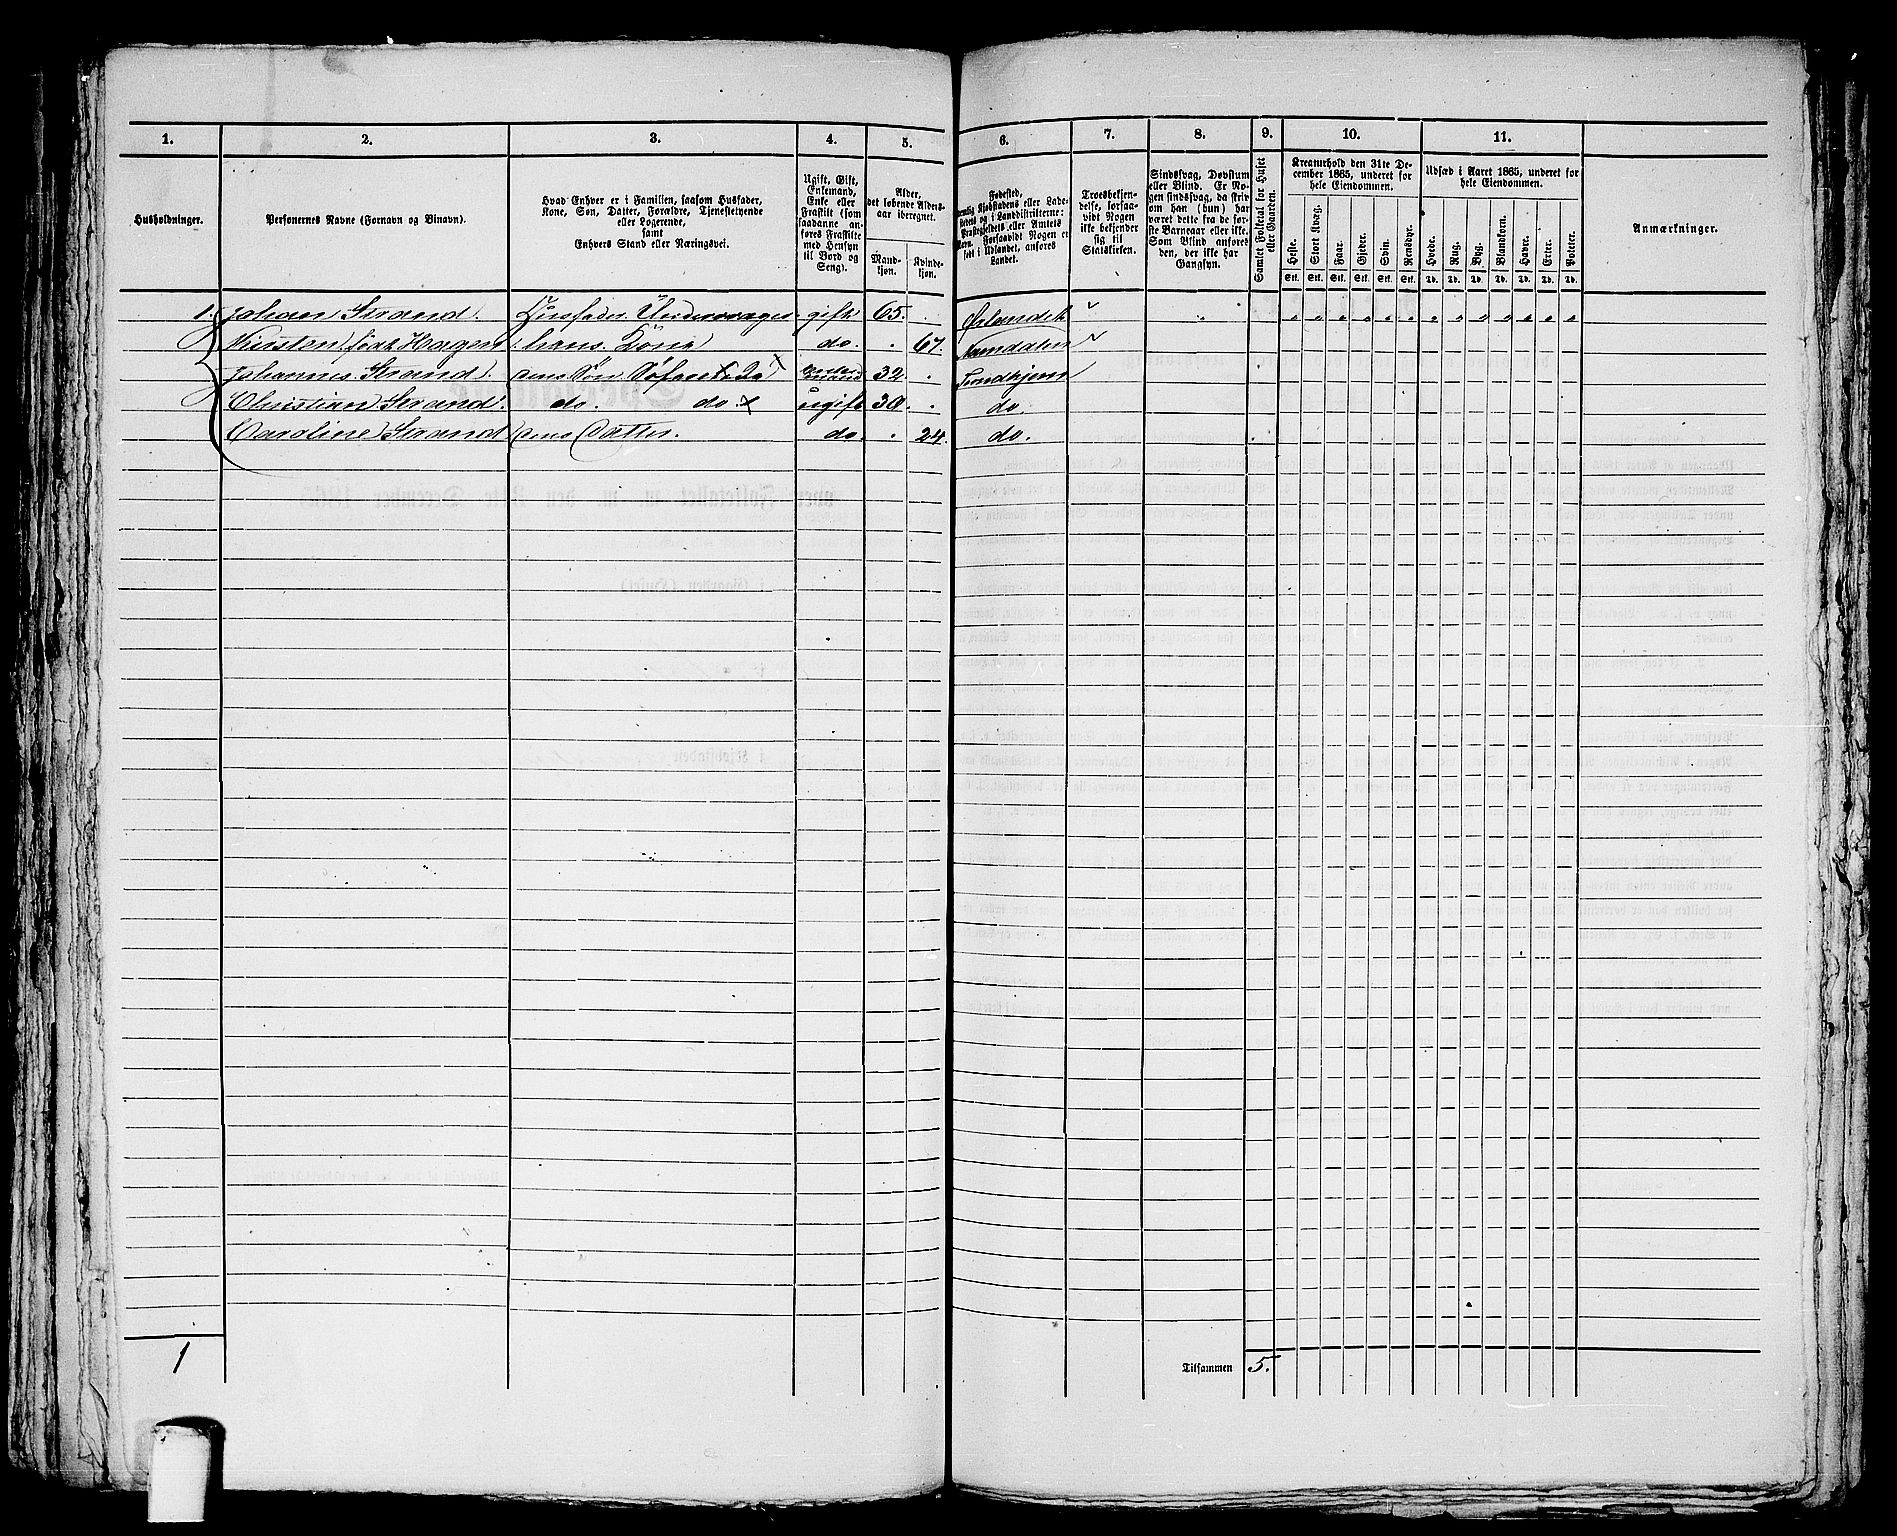 1.
2.
3.
4.
5.
6.
7.
8.
9.
10.
11.
Husholdninger.
Personernes Navne (Fornavn og Binavn).
Hvad Enhver er i Familien, saasom Husfader,
Kone, Søn, Datter, Forældre, Tjenestetyende
eller Logerende,
samt
Enhvers Stand eller Næringsvei.
Ugift, Gift,
Enkemand,
Enke eller
Fraskilt (som
saadanne an-
føres Fraskilte
med Hensyn
til Bord og
Seng).
Alder,
det løbende Alders-
aar iberegnet.
Mand-
kjøn.
Kvinde-
kjøn.
Fødested,
Kjøbstadens eller Lade-
stedets og i Landdistrikterne:
Præstegjeldets eller Amtets
Navn. Forsaavidt Nogen er
født i Udlandet, anføres
Landet.
Troesbekjen-
delse, forsaa-
vidt Nogen
ikke bekjender
sig til
Statskirken.
Sindssvag, Døvstum
eller Blind. Er No-
gen sindssvag, da skriv
om han (hun) har
været dette fra de før-
ste Barneaar eller ikke.
Som Blind anføres
den, der ikke har
Gangsyn.
Samlet Folketal for Huset
eller Gaarden.
Kreaturhold den 31te De-
cember 1865, underet for
hele Eiendommen.
Heste.
Stort Kvæg.
Faar.
Gjeder.
Svin.
Rensdyr.
Stk. Stk. Stk. Stk. Stk. Stk.
Udsæd i Aaret 1865, underet for
hele Eiendommen.
Hvede.
Rug.
Byg.
Blandkorn.
Havre.
Erter.
Poteter.
Td. Td. Td. Td. Td. Td. Td.
Anmærkninger.
1. Johan Strand. Husfader. gift 65. Ørlandet
Kirsten født Hagen hans Kone do. 67. Namdalen
Johannes Strand. deres Søn Enke-mand 32. Trondhjem
Christian Strand. do. do. ugift 30. do.
Caroline Strand deres Datter. do. 24. do.
1
Tilsammen 5.